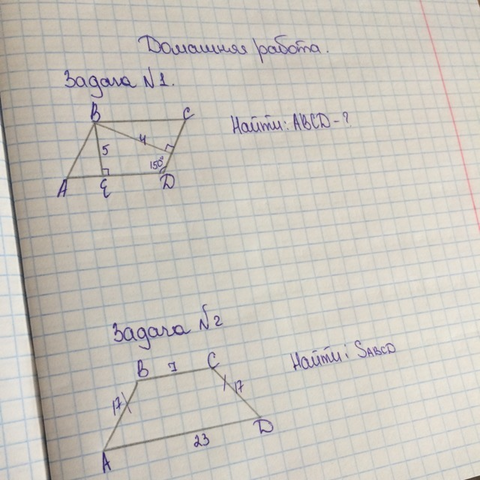 Домашняя работа.
Задача №1.
B C
Найти: ABCD - ?
4
5
150°
A E D
Задача №2
B 7 C
Найти: SABCD
17 17
23 D
A